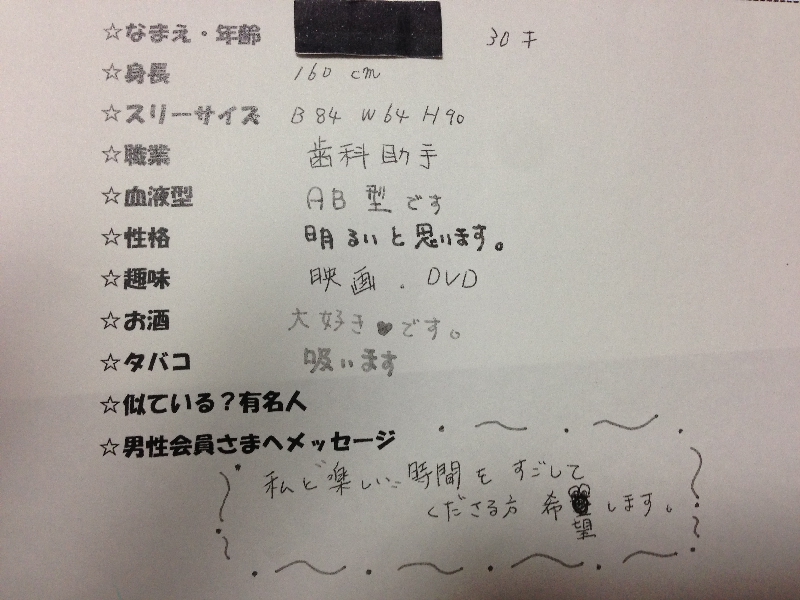 ☆なまえ・年齢 30才
☆身長 160 cm
☆スリーサイズ B 84 W 64 H 90
☆職業 歯科助手
☆血液型 AB型です
☆性格 明るいと思います。
☆趣味 映画．DVD
☆お酒 大好き♥です。
☆タバコ 吸います
☆似ている？有名人
☆男性会員さまへメッセージ
私と楽しい時間をすごして
くださる方 希望します。